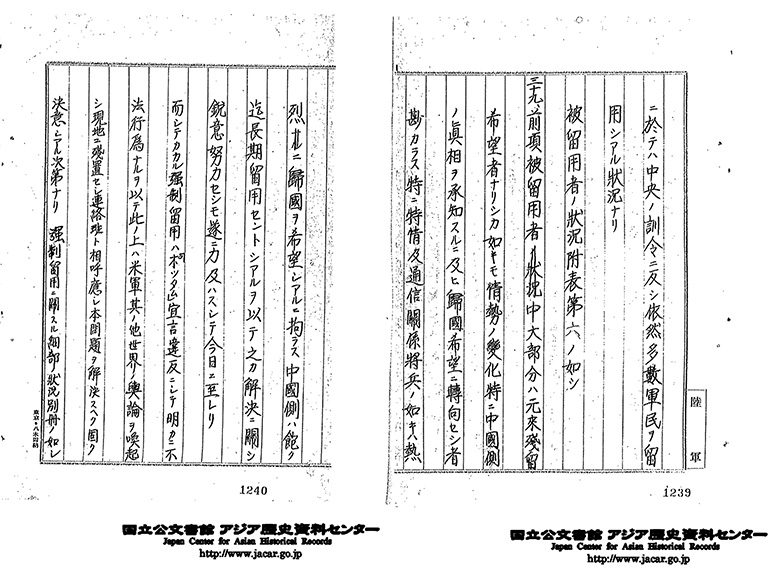 ニ於テハ中央ノ訓令ニ反シ依然多數軍民ヲ留
用シアル狀況ナリ
被留用者ノ狀況附表第六ノ如シ
三九、前項被留用者ノ狀況中大部分ハ元来殘留
希望者ナリシカ如キモ情勢ノ變化特ニ中國側
ノ眞相ヲ承知スルニ及ヒ歸國希望ニ轉向セシ者
尠カラス特ニ特情及通信關係將兵ノ如キハ熱
陸軍
1239
国立公文書館 アジア歴史資料センター
Japan Center for Asian Historical Records
http://www.jacar.go.jp
烈ナルニ歸國ヲ希望シアルニ拘ラス中國側ハ飽ク
迄長期留用セントシアルヲ以テ之カ解決ニ關シ
鋭意努力セシモ遂ニ力及ハスシテ今日ニ至レリ
而シテカカル强制留用ハポツダム宣言違反ニシテ明カニ不
法行爲ナルヲ以テ此ノ上ハ米軍其ノ他世界ノ輿論ヲ喚起
シ現地ニ殘置セシ連絡班ト相呼應シ本問題ヲ解決スヘク固ク
決意シアル次第ナリ 强制留用ニ關スル細部ノ狀況別冊ノ如シ
1240
国立公文書館 アジア歴史資料センター
Japan Center for Asian Historical Records
http://www.jacar.go.jp